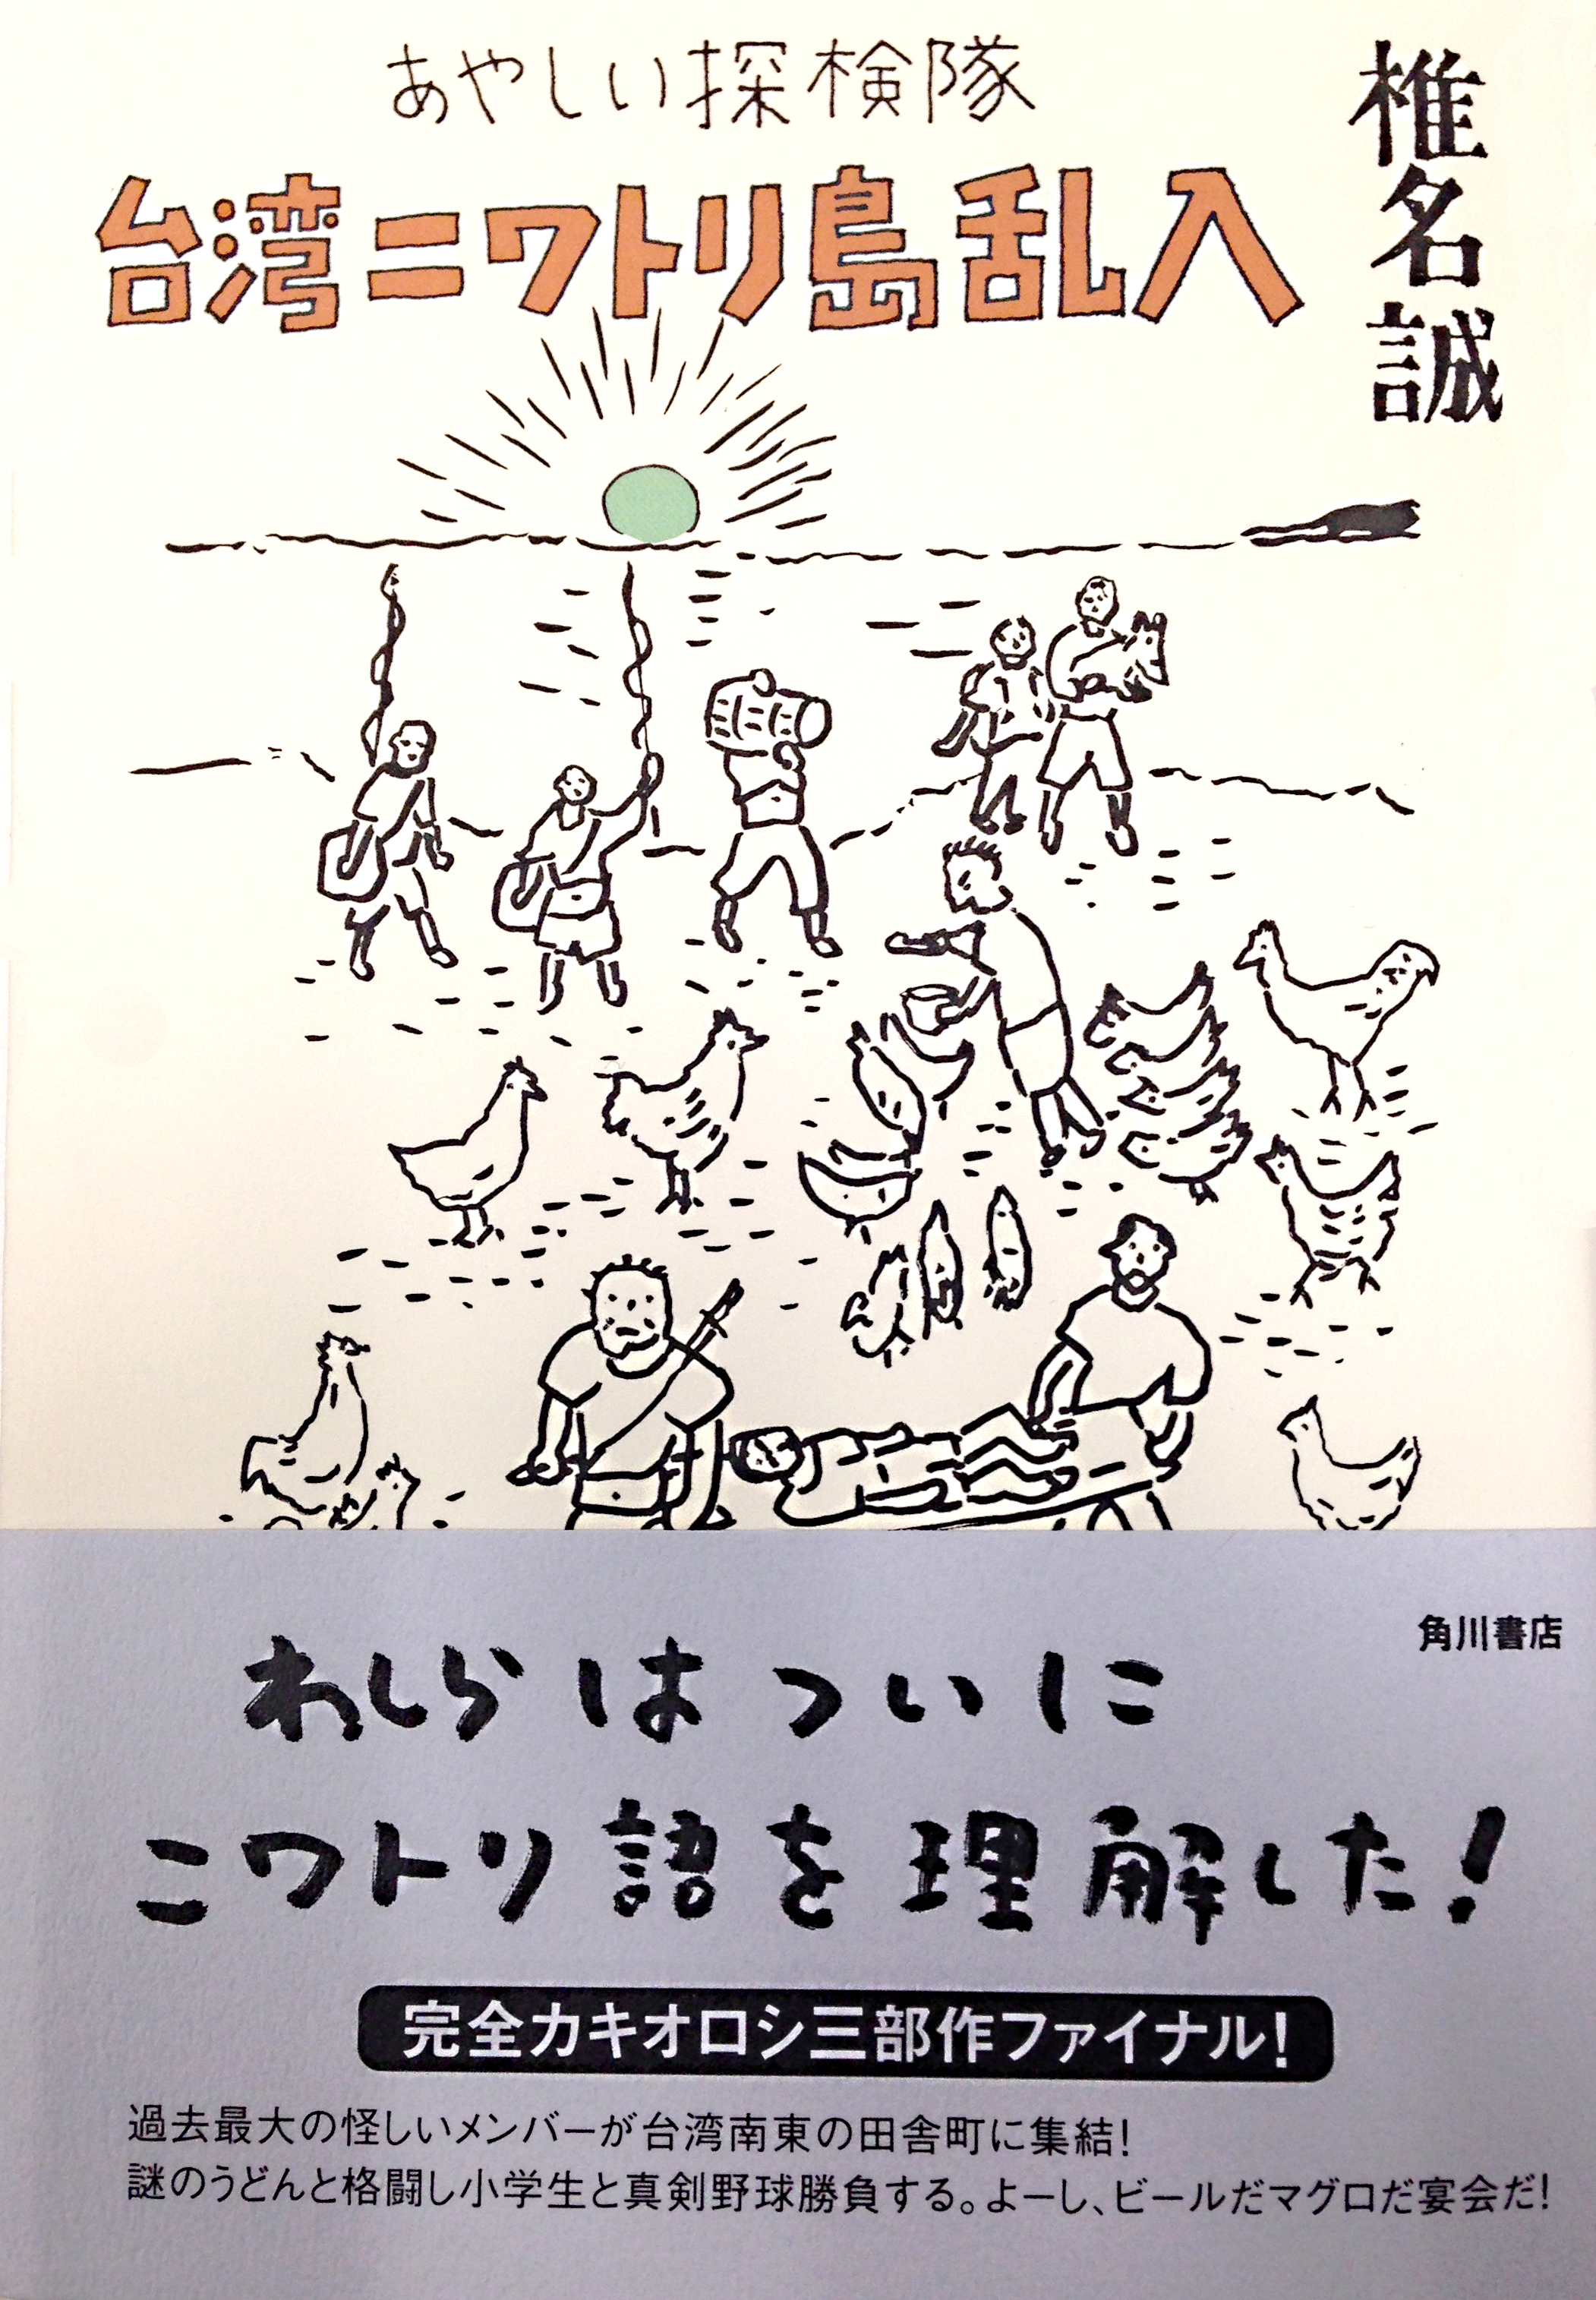 あやしい探検隊
台湾ニワトリ島乱入
椎名誠
角川書店
わしらはついに
ニワトリ語を理解した!
完全カキオロシ三部作ファイナル!
過去最大の怪しいメンバーが台湾南東の田舎町に集結!
謎のうどんと格闘し小学生と真剣野球勝負する。よーし、ビールだマグロだ宴会だ!